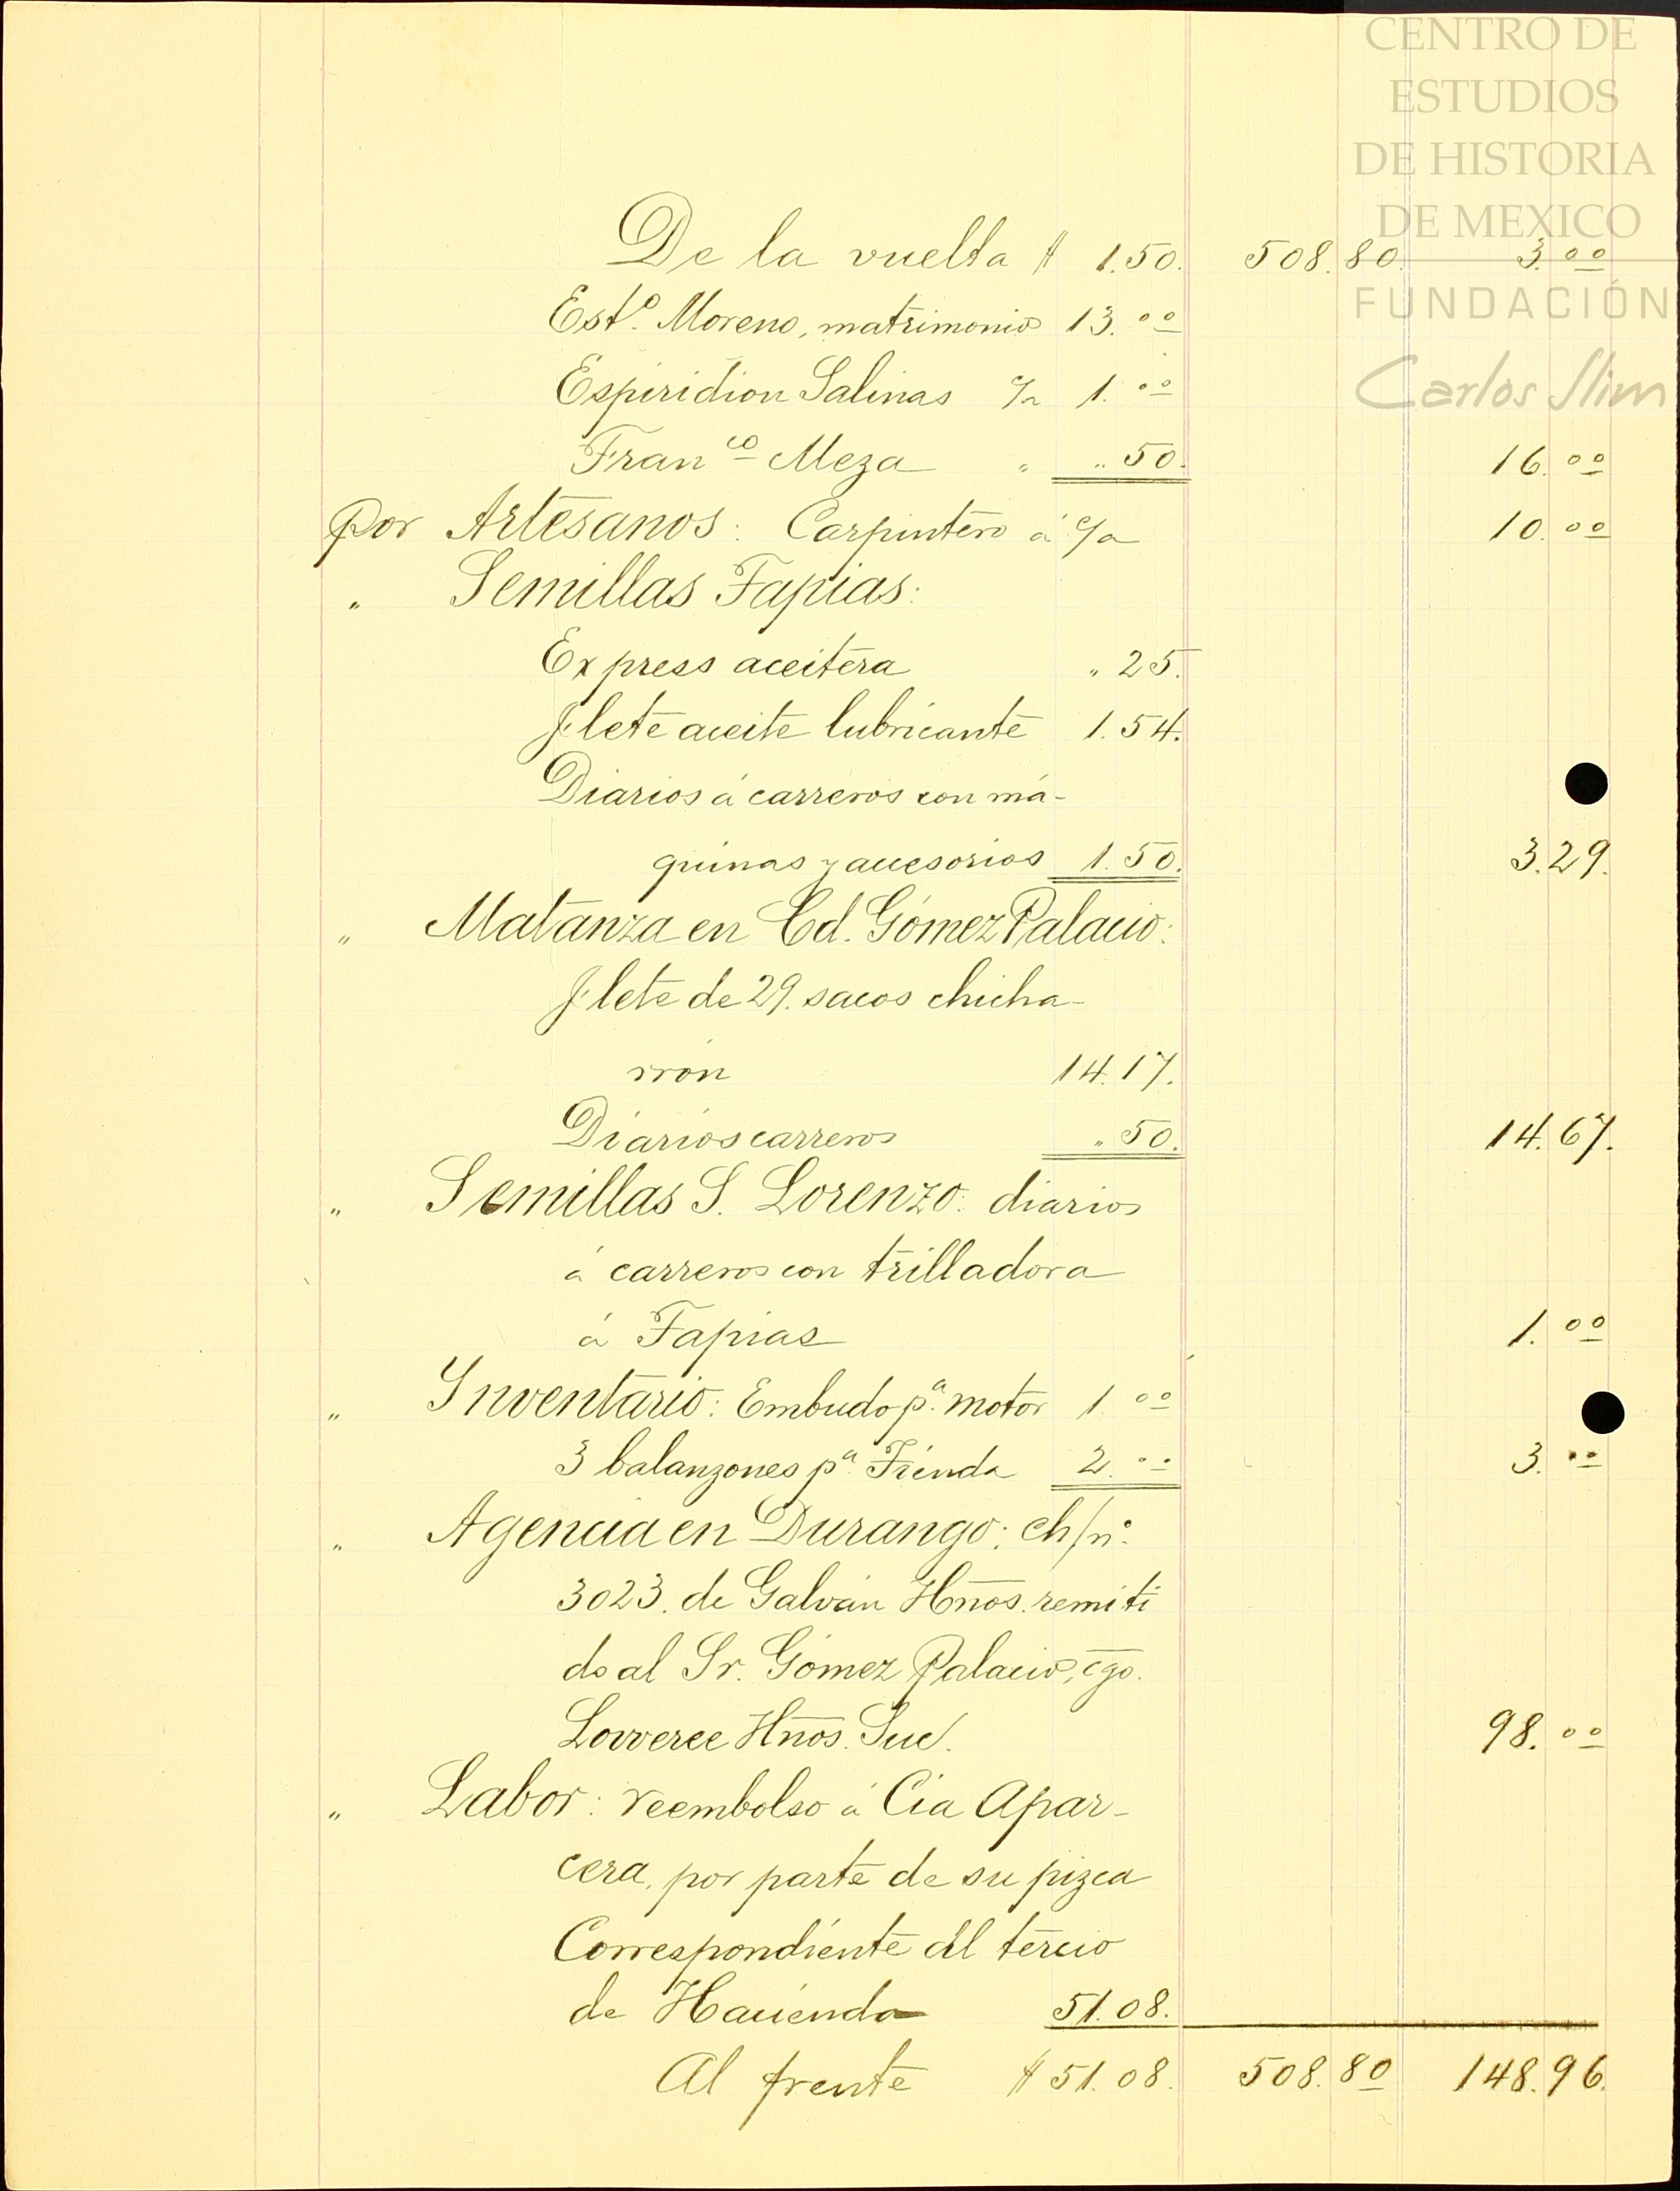 CENTRO DE
ESTUDIOS
DE HISTORIA
DE MEXICO
FUNDACIÓN
Carlos Slim
De la vuelta $ 1.50. 508.80. 3.00
Est.º Moreno, matrimonio 13.00
Espiridion Salinas c/a 1.00
Fran.co Meza " " 50. 16.00
Por Artesanos: Carpintero á c/a 10.00
" Semillas Tapias:
Express aceitera " 25.
Flete aceite lubricante 1.54.
Diarios á carreros con má-
quinas y accesorios 1.50. 3.29.
" Matanza en Cd. Gómez Palacio:
Flete de 29. sacos chicha-
rrón 14.17.
Diarios carreros " 50. 14.67.
" Semillas S. Lorenzo: diarios
á carreros con trilladora
á Tapias 1.00
" Inventario: Embudo p.a motor 1.00
3 balanzones p.a Tienda 2.00 3.00
" Agencia en Durango: ch/nº
3023. de Galván Hnos. remiti
do al Sr. Gómez Palacio, cgo.
Hnos. Suc.
98.00
" Labor: reembolso á Cia Apar-
cera, por parte de su pizca
Correspondiente del tercio
de Hacienda 51.08.
Al frente $ 51.08. 508.80 148.96.